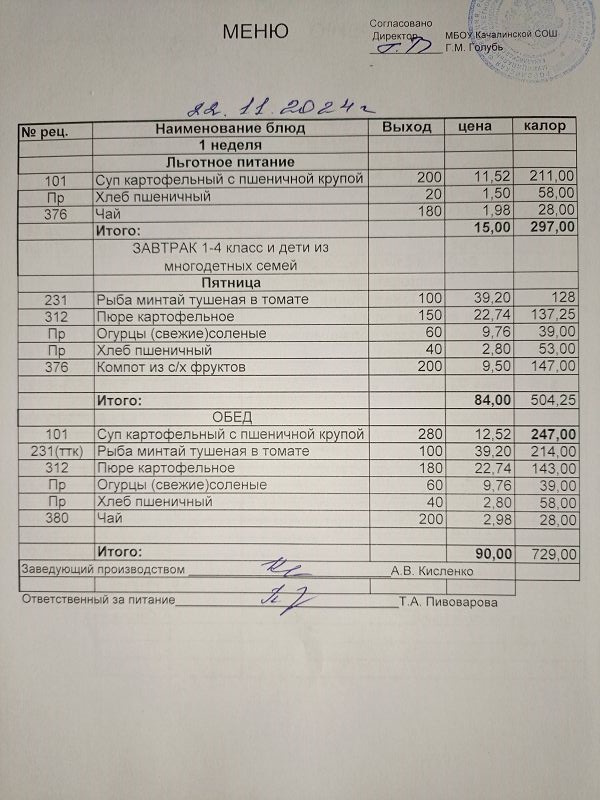 МЕНЮ
Согласовано
Директор МБОУ Качалинской СОШ
Г.М. Голубь
22.11.2024г
№ рец. Наименование блюд Выход цена калор
1 неделя
Льготное питание
101 Суп картофельный с пшеничной крупой 200 11,52 211,00
Пр Хлеб пшеничный 20 1,50 58,00
376 Чай 180 1,98 28,00
Итого: 15,00 297,00
ЗАВТРАК 1-4 класс и дети из
многодетных семей
Пятница
231 Рыба минтай тушеная в томате 100 39,20 128
312 Пюре картофельное 150 22,74 137,25
Пр Огурцы (свежие)соленые 60 9,76 39,00
Пр Хлеб пшеничный 40 2,80 53,00
376 Компот из с/х фруктов 200 9,50 147,00
Итого: 84,00 504,25
ОБЕД
101 Суп картофельный с пшеничной крупой 280 12,52 247,00
231(ттк) Рыба минтай тушеная в томате 100 39,20 214,00
312 Пюре картофельное 180 22,74 143,00
Пр Огурцы (свежие)соленые 60 9,76 39,00
Пр Хлеб пшеничный 40 2,80 58,00
380 Чай 200 2,98 28,00
Итого: 90,00 729,00
Заведующий производством А.В. Кисленко
Ответственный за питание Т.А. Пивоварова